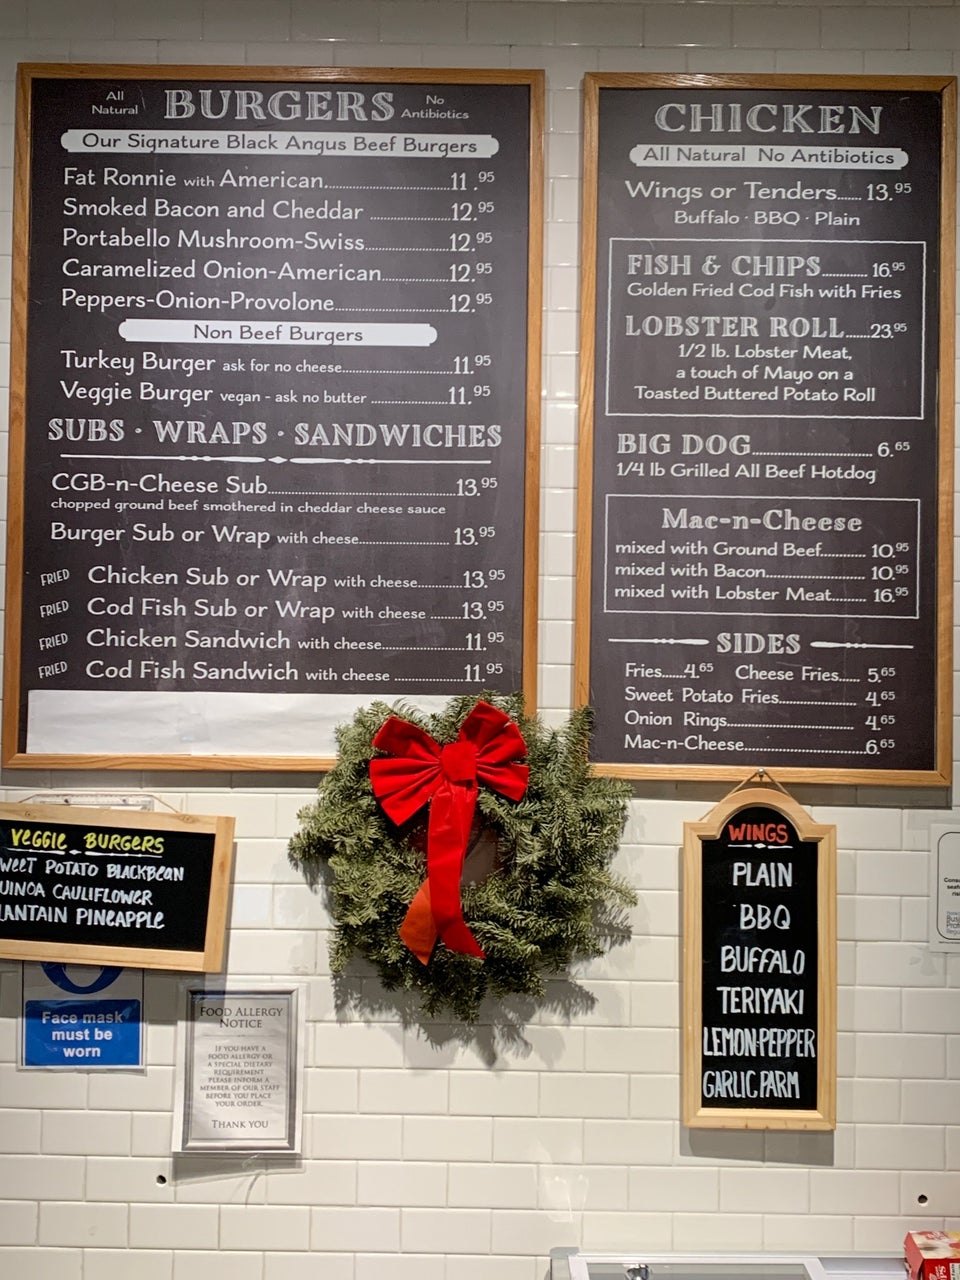 All Natural
BURGERS
No Antibiotics
Our Signature Black Angus Beef Burgers
Fat Ronnie with American 11.95
Smoked Bacon and Cheddar 12.95
Portabello Mushroom-Swiss 12.95
Caramelized Onion-American 12.95
Peppers-Onion-Provolone 12.95
Non Beef Burgers
Turkey Burger ask for no cheese 11.95
Veggie Burger vegan - ask no butter 11.95
SUBS · WRAPS · SANDWICHES
CGB-n-Cheese Sub 13.95
chopped ground beef smothered in cheddar cheese sauce
Burger Sub or Wrap with cheese 13.95
FRIED Chicken Sub or Wrap with cheese 13.95
FRIED Cod Fish Sub or Wrap with cheese 13.95
FRIED Chicken Sandwich with cheese 11.95
FRIED Cod Fish Sandwich with cheese 11.95
CHICKEN
All Natural No Antibiotics
Wings or Tenders 13.95
Buffalo · BBQ · Plain
FISH & CHIPS 16.95
Golden Fried Cod Fish with Fries
LOBSTER ROLL 23.95
1/2 lb. Lobster Meat,
a touch of Mayo on a
Toasted Buttered Potato Roll
BIG DOG 6.65
1/4 lb Grilled All Beef Hotdog
Mac-n-Cheese
mixed with Ground Beef 10.95
mixed with Bacon 10.95
mixed with Lobster Meat 16.95
SIDES
Fries 4.65 Cheese Fries 5.65
Sweet Potato Fries 4.65
Onion Rings 4.65
Mac-n-Cheese 6.65
VEGGIE BURGERS
WEET POTATO BLACKBEAN
UINOA CAULIFLOWER
LANTAIN PINEAPPLE
Face mask
must be
worn
FOOD ALLERGY
NOTICE
IF YOU HAVE A
FOOD ALLERGY OR
A SPECIAL DIETARY
REQUIREMENT
PLEASE INFORM A
MEMBER OF OUR STAFF
BEFORE YOU PLACE
YOUR ORDER.
THANK YOU
WINGS
PLAIN
BBQ
BUFFALO
TERIYAKI
LEMON-PEPPER
GARLIC PARM